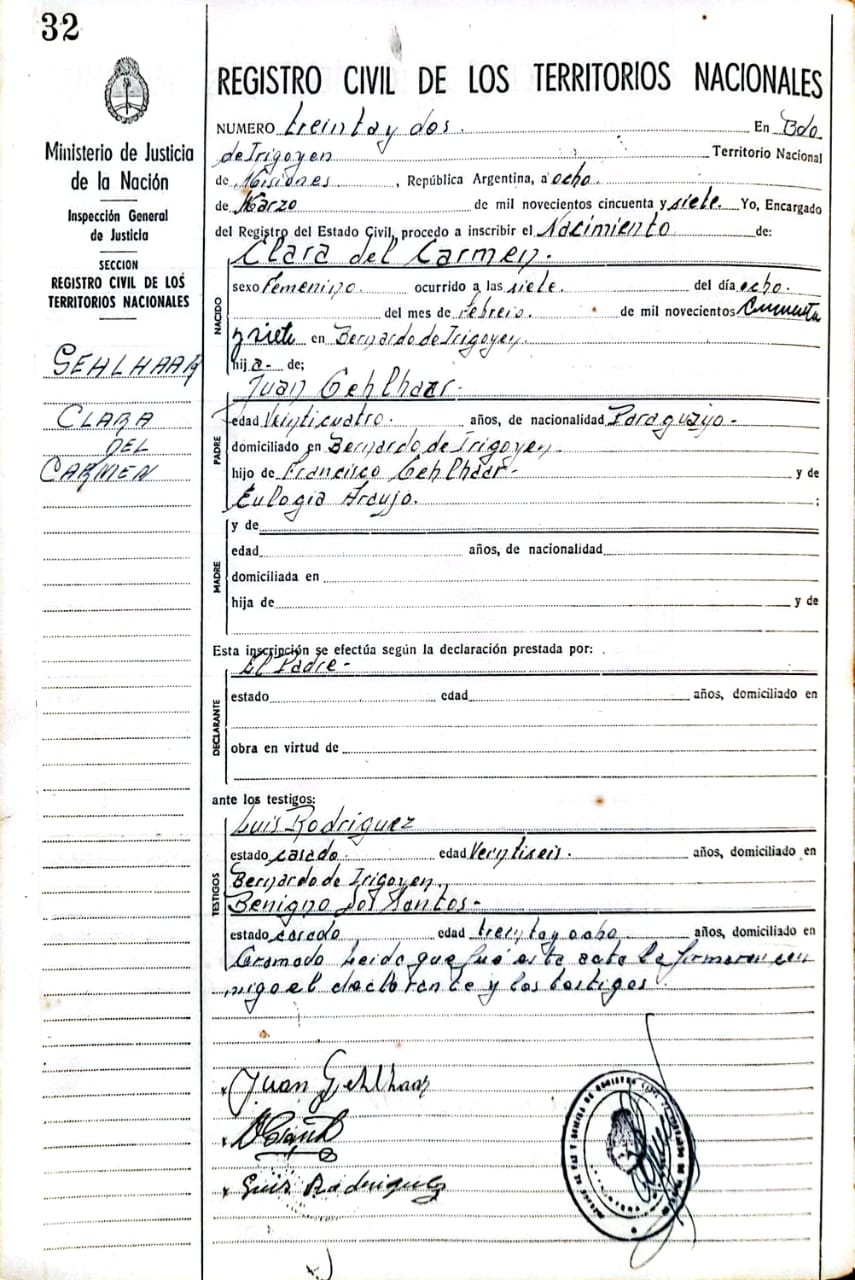 32
Ministerio de Justicia
de la Nación
Inspección General
de Justicia
SECCION
REGISTRO CIVIL DE LOS
TERRITORIOS NACIONALES
GEHLHAAR
CLARA
DEL
CARMEN
REGISTRO CIVIL DE LOS TERRITORIOS NACIONALES
NUMERO treinta y dos. En Bdo
de Irigoyen Territorio Nacional
de Misiones, República Argentina, a ocho.
de Marzo de mil novecientos cincuenta y siete. Yo, Encargado
del Registro del Estado Civil, procedo a inscribir el Nacimiento de:
NACIDO
Clara del Carmen.
sexo Femenino. ocurrido a las siete. del día ocho.
del mes de Febrero. de mil novecientos Cincuenta
y siete en Bernardo de Irigoyen.
hija- de;
PADRE
Juan Gehlhaar.
edad Veinticuatro. años, de nacionalidad Paraguayo-
domiciliado en Bernardo de Irigoyen.
hijo de Francisco Gehlhaar- y de
Eulogia Araujo. ;
MADRE
y de
edad años, de nacionalidad
domiciliada en
hija de y de
Esta inscripción se efectúa según la declaración prestada por:
DECLARANTE
El Padre-
estado edad años, domiciliado en
obra en virtud de
ante los testigos:
TESTIGOS
Luis Rodriguez
estado casado. edad Veintiseis. años, domiciliado en
Bernardo de Irigoyen.
Benigno Dos Santos-
estado casado edad treinta y ocho años, domiciliado en
Gramado Leida que fué esta acta la firmaron con
migo el declarante y los testigos.
Juan Gehlhaar
Luis Rodriguez